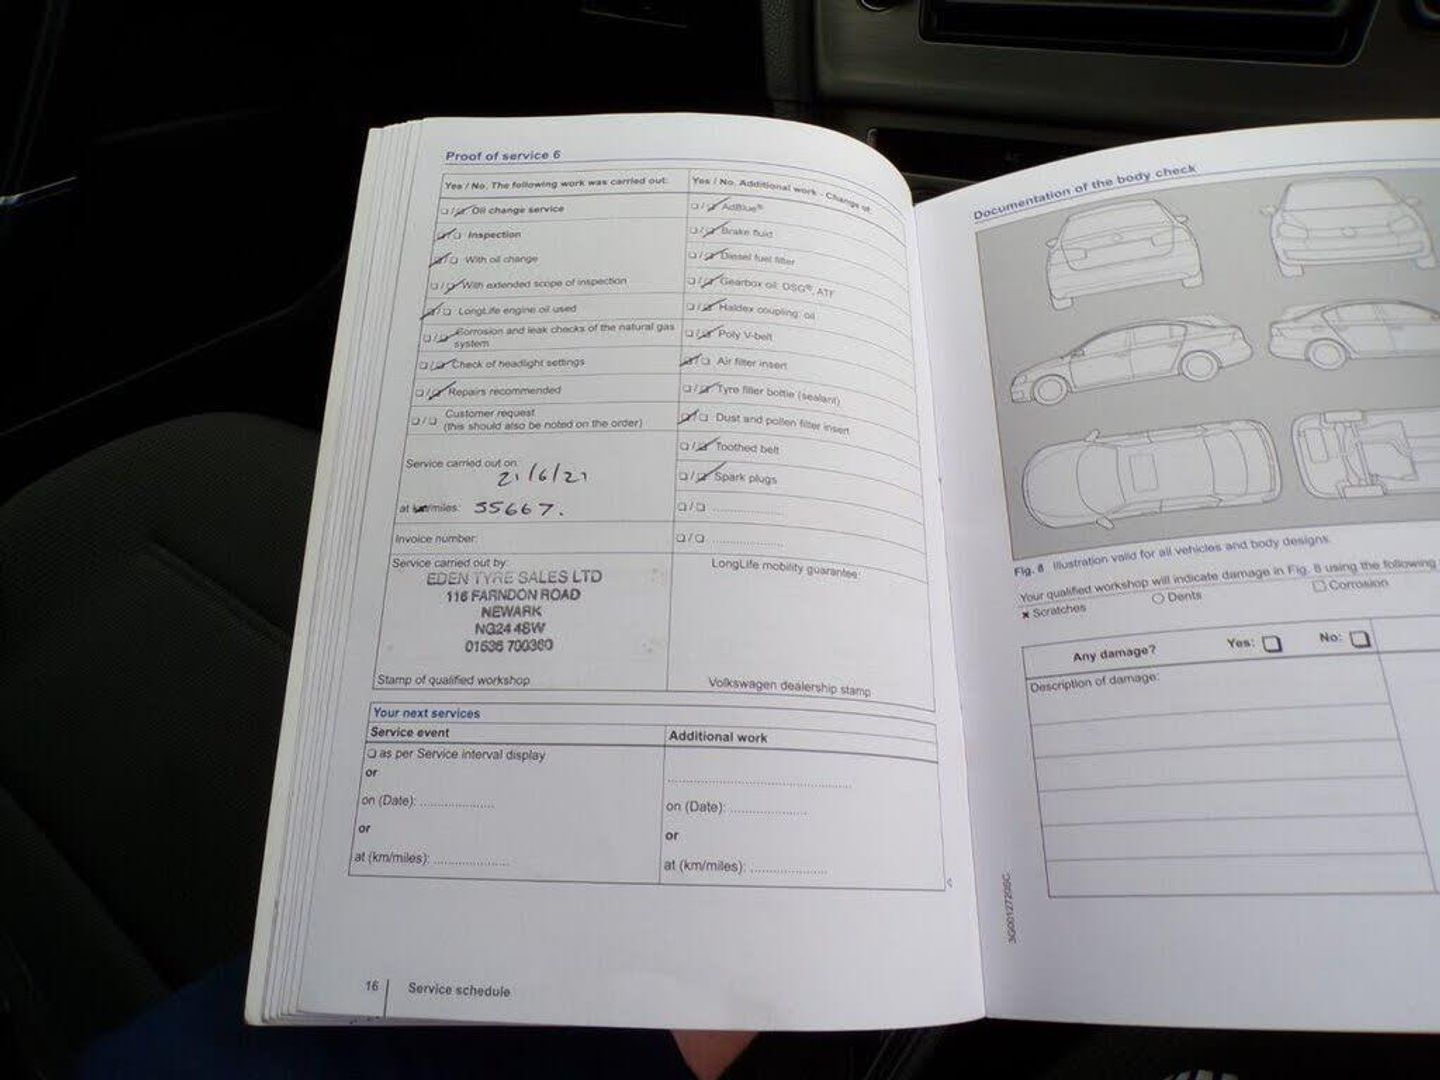 Proof of service 6
Yes / No. The following work was carried out:
❑ / ❑ Oil change service
❑ / ❑ Inspection
❑ / ❑ With oil change
❑ / ❑ With extended scope of inspection
❑ / ❑ LongLife engine oil used
❑ / ❑ Corrosion and leak checks of the natural gas
system
❑ / ❑ Check of headlight settings
❑ / ❑ Repairs recommended
❑ / ❑ Customer request
(this should also be noted on the order)
Service carried out on:
21/6/21
at km/miles: 55667.
Invoice number:
Service carried out by:
EDEN TYRE SALES LTD
116 FARNDON ROAD
NEWARK
NG24 4SW
01636 700360
Stamp of qualified workshop
Yes / No. Additional work - Change of
❑ / ❑ AdBlue®
❑ / ❑ Brake fluid
❑ / ❑ Diesel fuel filter
❑ / ❑ Gearbox oil: DSG®, ATF
❑ / ❑ Haldex coupling: oil
❑ / ❑ Poly V-belt
❑ / ❑ Air filter insert
❑ / ❑ Tyre filler bottle (sealant)
❑ / ❑ Dust and pollen filter insert
❑ / ❑ Toothed belt
❑ / ❑ Spark plugs
❑ / ❑ ....................
❑ / ❑ ....................
LongLife mobility guarantee:
Volkswagen dealership stamp
Your next services
Service event
❑ as per Service interval display
or
on (Date): ....................
or
at (km/miles): ....................
Additional work
..................................................
on (Date): ....................
or
at (km/miles): ....................
16 Service schedule
Documentation of the body check
Fig. 8 Illustration valid for all vehicles and body designs.
Your qualified workshop will indicate damage in Fig. 8 using the following
× Scratches ○ Dents □ Corrosion
Any damage? Yes: ❑ No: ❑
Description of damage: